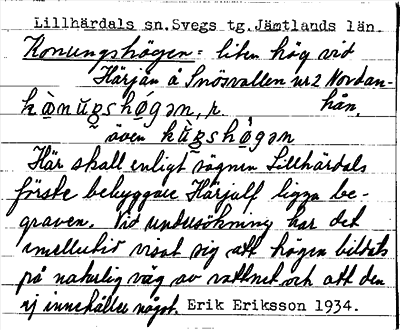 Lillhärdals sn. Svegs tg. Jämtlands län.
Konungshögen: liten hög vid
Härjån å Snösvallen nr 2 Nordan-
hån.
även
Här skall enligt sägnen Lillhärdals
förste bebyggare Härjulf ligga be-
graven. Vid undersökning har det
emellertid visat sig att högen bildats
på naturlig väg av vattnet och att den
ej innehåller något. Erik Eriksson 1934.